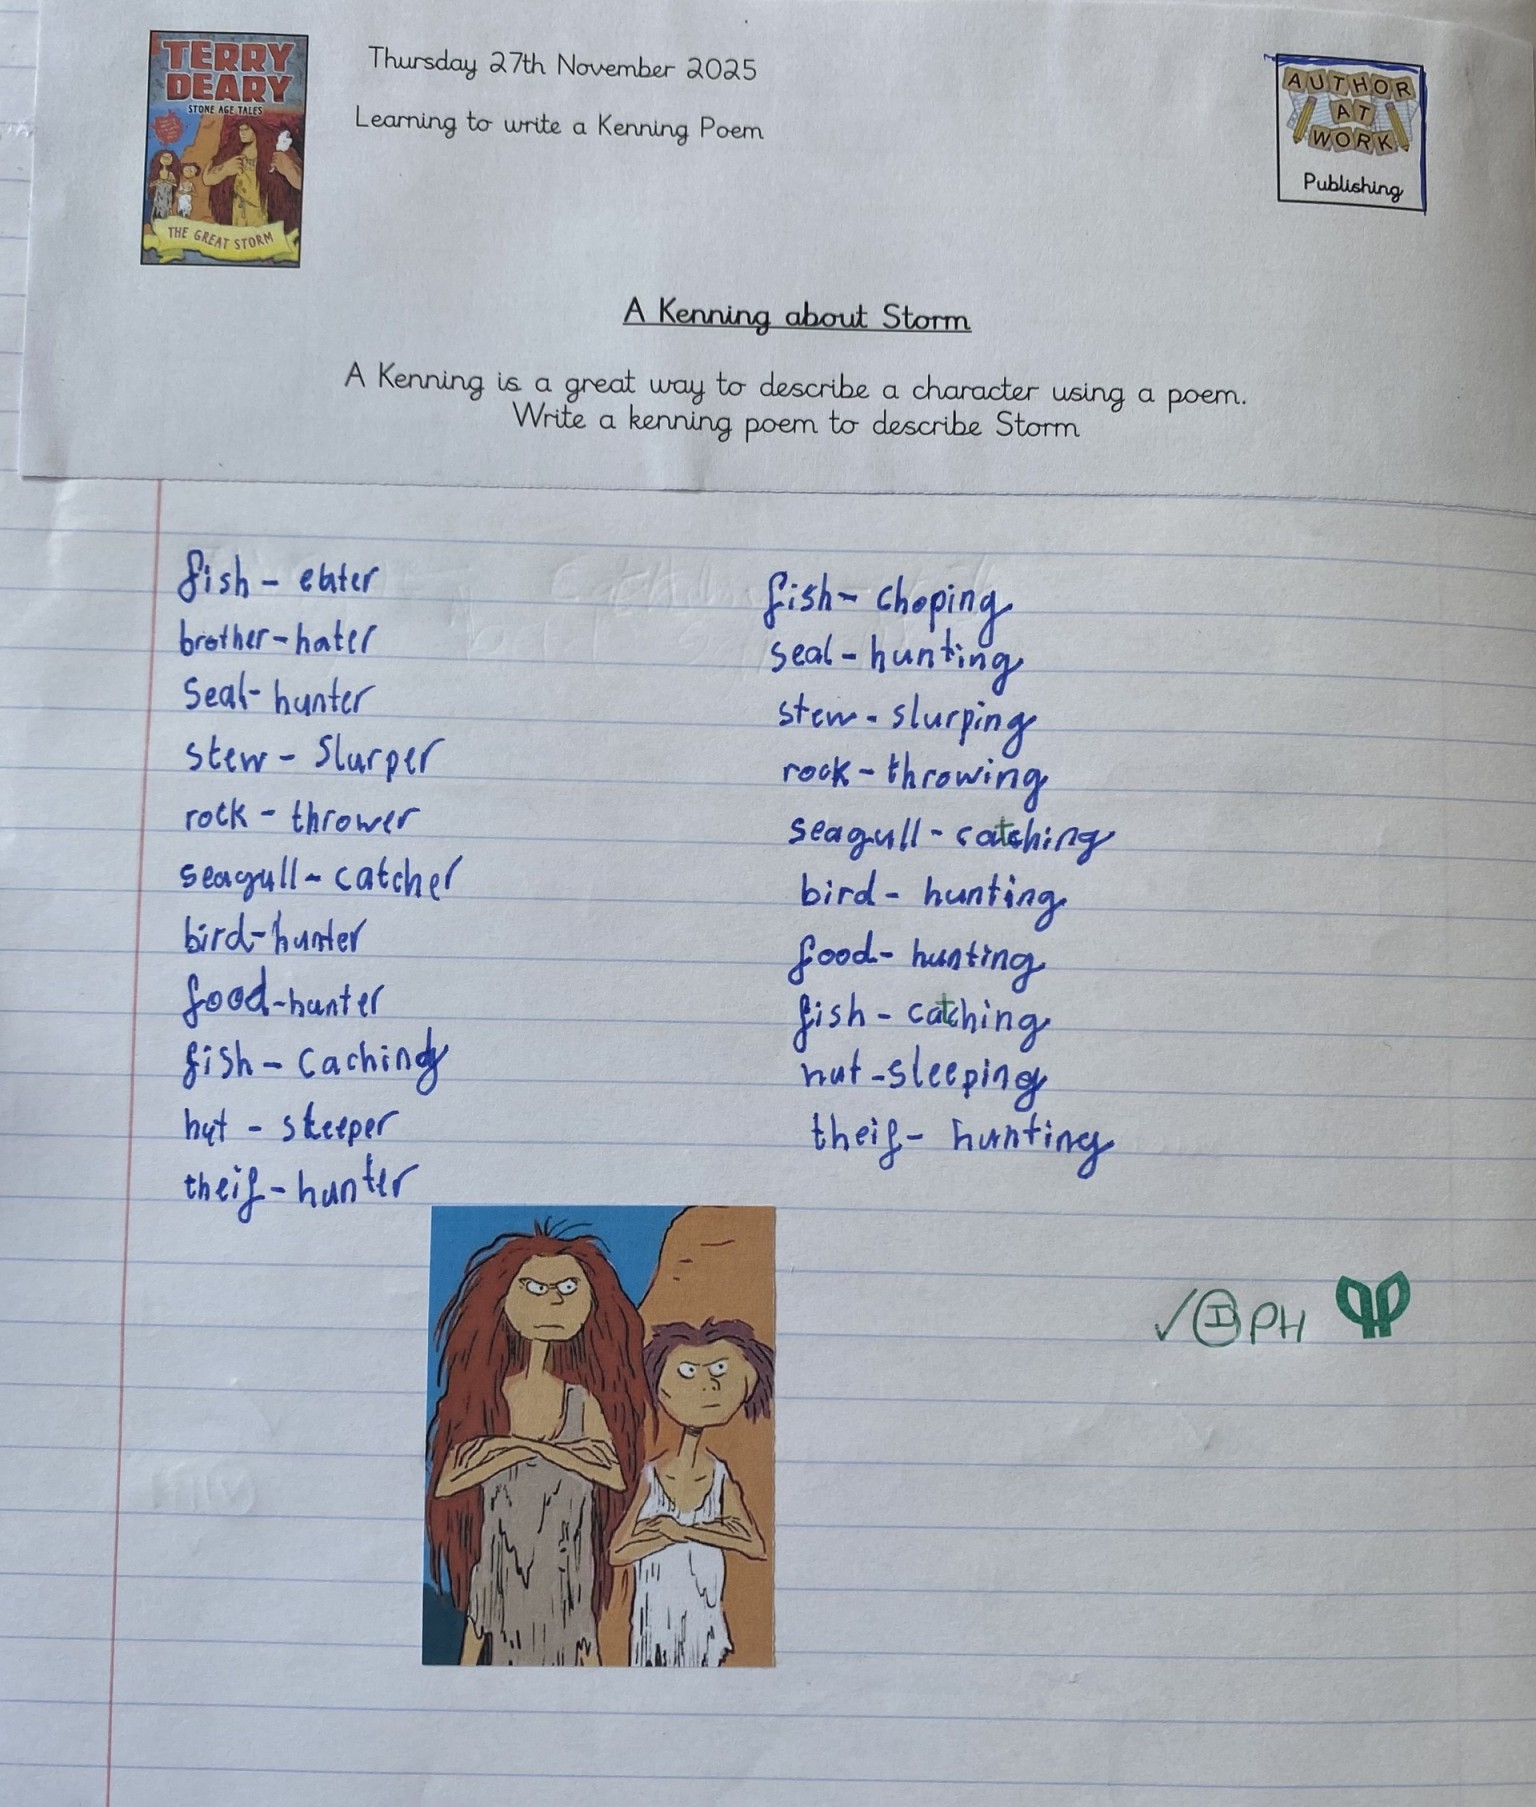 TERRY
DEARY
STONE AGE TALES
THE GREAT STORM
Thursday 27th November 2025
Learning to write a Kenning Poem
AUTHOR
AT
WORK
Publishing
A Kenning about Storm
A Kenning is a great way to describe a character using a poem.
Write a kenning poem to describe Storm
fish - eater
brother - hater
Seal - hunter
stew - Slurper
rock - thrower
seagull - catcher
bird - hunter
food - hunter
fish - Caching
hut - sleeper
theif - hunter
fish - choping
seal - hunting
stew - slurping
rock - throwing
seagull - catching
bird - hunting
food - hunting
fish - catching
hut - sleeping
theif - hunting
✓ I PH